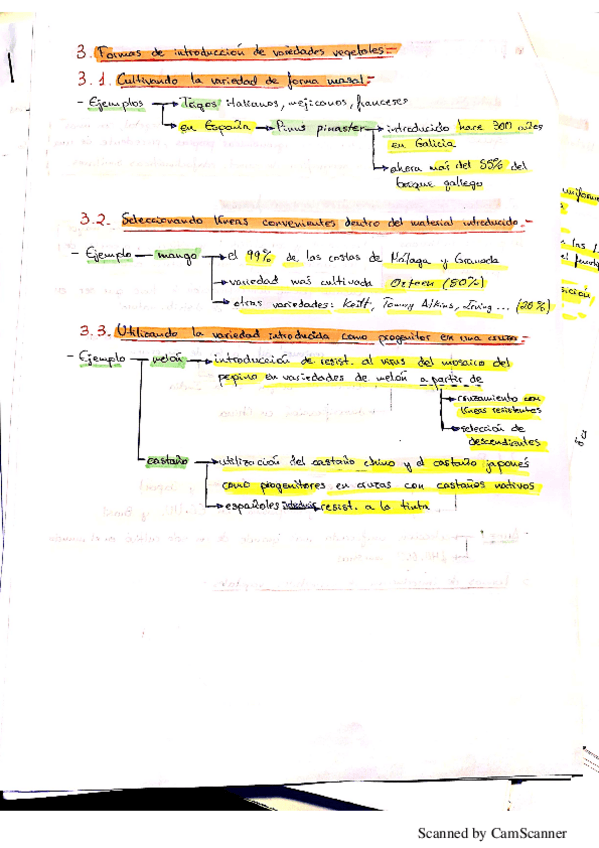 3. Formas de introducción de variedades vegetales.-
3.1. Cultivando la variedad de forma masal.-
- Ejemplos → Trigos italianos, mejicanos, franceses
→ en España → Pinus pinaster → introducido hace 300 años
en Galicia
→ ahora más del 55% del
bosque gallego
3.2. Seleccionando líneas convenientes dentro del material introducido.-
- Ejemplo — mango → el 99% de las costas de Málaga y Granada
→ variedad más cultivada Osteen (80%)
→ otras variedades: Keitt, Tommy Atkins, Irving... (20%)
3.3. Utilizando la variedad introducida como progenitor en una cruza
- Ejemplo — melón → introducción de resist. al virus del mosaico del
pepino en variedades de melón a partir de
→ cruzamiento con
líneas resistentes
→ selección de
descendientes
castaño → utilización del castaño chino y el castaño japonés
como progenitores en cruzas con castaños nativos
→ españoles resist. a la tinta
uniforme
Scanned by CamScanner